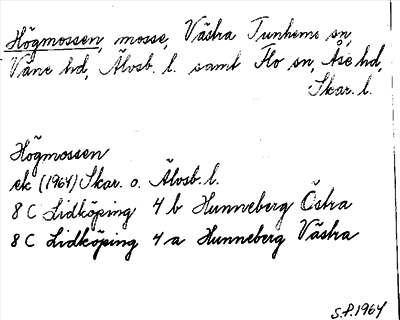 Högmossen, mosse, Västra Tunhems sn,
Väne hd, Älvsb. l. samt Flo sn, Åse hd,
Skar. l.
Högmossen
ek (1964) Skar. o. Älvsb. l.
8 C Lidköping 4 b Hunneberg Östra
8 C Lidköping 4 a Hunneberg Västra
S.P. 1964